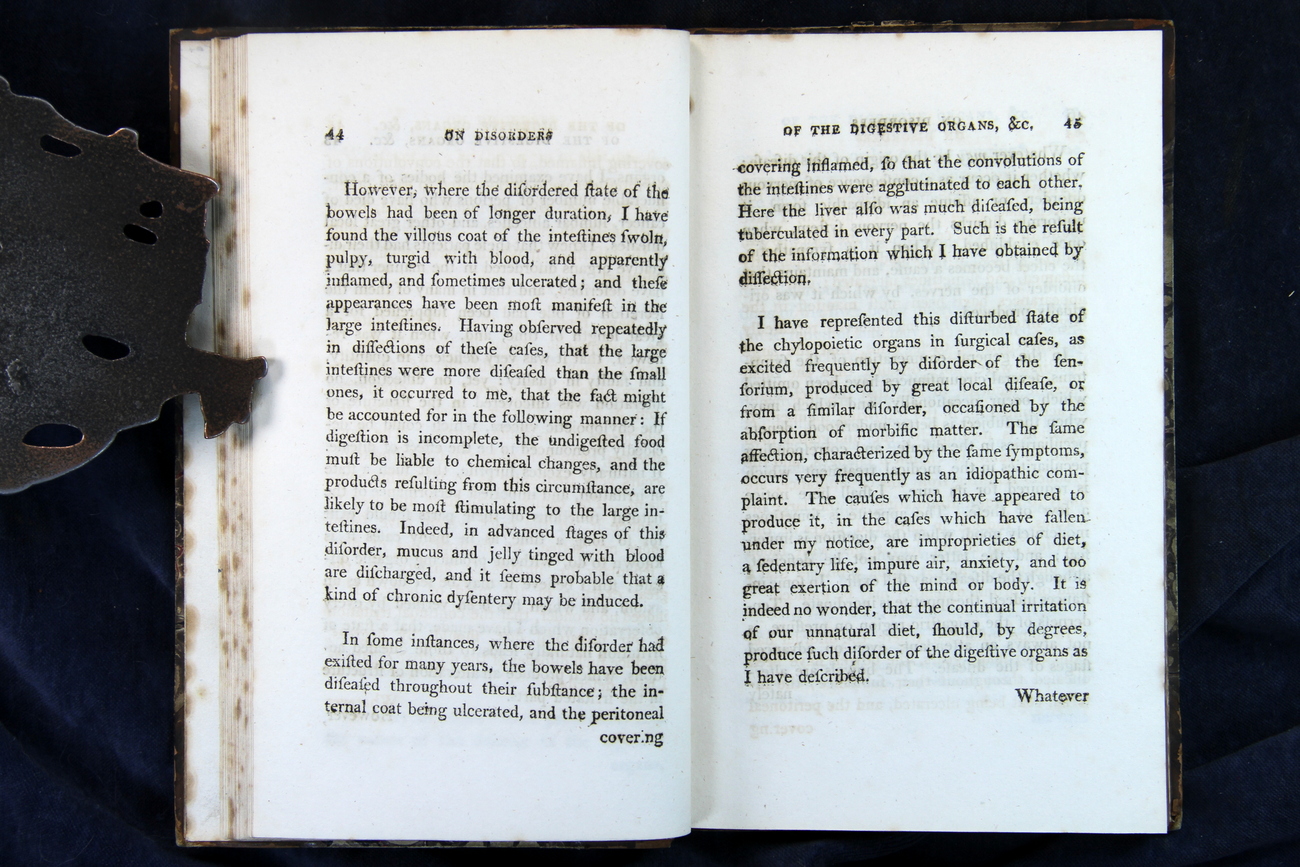 44 ON DISORDERS
However, where the diſordered ſtate of the
bowels had been of longer duration, I have
found the villous coat of the inteſtines ſwoln,
pulpy, turgid with blood, and apparently
inflamed, and ſometimes ulcerated; and theſe
appearances have been moſt manifeſt in the
large inteſtines. Having obſerved repeatedly
in diſſections of theſe caſes, that the large
inteſtines were more diſeaſed than the ſmall
ones, it occurred to me, that the fact might
be accounted for in the following manner: If
digeſtion is incomplete, the undigeſted food
muſt be liable to chemical changes, and the
products reſulting from this circumſtance, are
likely to be moſt ſtimulating to the large in-
teſtines. Indeed, in advanced ſtages of this
diſorder, mucus and jelly tinged with blood
are diſcharged, and it ſeems probable that a
kind of chronic dyſentery may be induced.
In ſome inſtances, where the diſorder had
exiſted for many years, the bowels have been
diſeaſed throughout their ſubſtance; the in-
ternal coat being ulcerated, and the peritoneal
covering
OF THE DIGESTIVE ORGANS, &c. 45
covering inflamed, ſo that the convolutions of
the inteſtines were agglutinated to each other.
Here the liver alſo was much diſeaſed, being
tuberculated in every part. Such is the reſult
of the information which I have obtained by
diſſection.
I have repreſented this diſturbed ſtate of
the chylopoietic organs in ſurgical caſes, as
excited frequently by diſorder of the ſen-
ſorium, produced by great local diſeaſe, or
from a ſimilar diſorder, occaſioned by the
abſorption of morbific matter. The ſame
affection, characterized by the ſame ſymptoms,
occurs very frequently as an idiopathic com-
plaint. The cauſes which have appeared to
produce it, in the caſes which have fallen
under my notice, are improprieties of diet,
a ſedentary life, impure air, anxiety, and too
great exertion of the mind or body. It is
indeed no wonder, that the continual irritation
of our unnatural diet, ſhould, by degrees,
produce ſuch diſorder of the digeſtive organs as
I have deſcribed.
Whatever